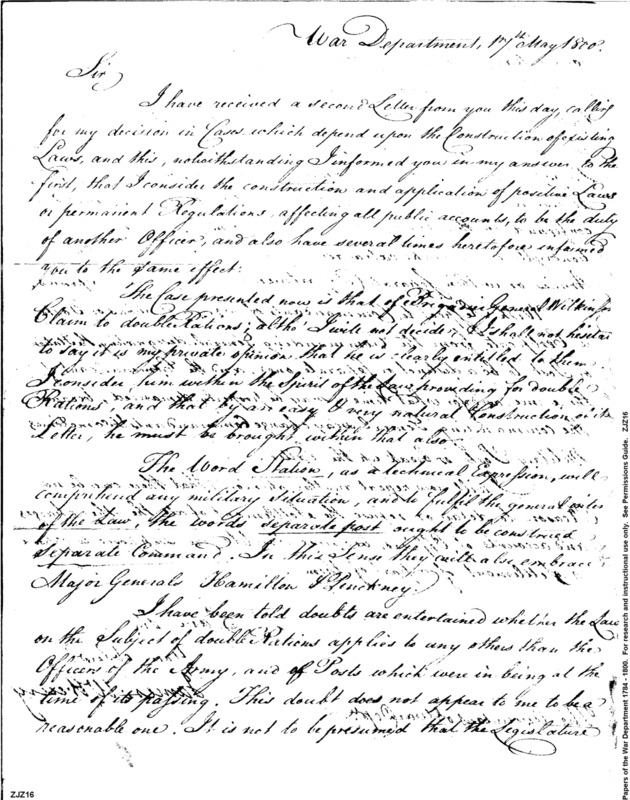 War Department, 17th May 1800.
Sir
I have received a second Letter from you this day, calling
for my decision in Cases which depend upon the Construction of existing
Laws, and this, notwithstanding I informed you in my answer to the
first, that I consider the construction and application of positive Laws
or permanent Regulations, affecting all public accounts, to be the duty
of another Officer, and also have several times heretofore informed
you to the same effect.
The Case presented now is that of Brigadier General Wilkinson
Claim to double Rations; altho' I will not decide, I shall not hesitate
to say it is my private opinion that he is clearly entitled to them
I consider him within the Spirit of the Law providing for double
Rations, and that by an easy & very natural Construction of its
Letter, he must be brought within that also.
The Word Station, as a technical Expression, will
comprehend any military Situation and to fulfil the general
of the Law, the words separate post ought to be construed
separate Command. In this Sense they will also embrace
Major Generals Hamilton & Pinckney.
I have been told doubts are entertained whether the Law
on the Subject of double Rations applies to any others than the
Officers of the Army, and of Posts which were in being at the
time of its passing. This doubt does not appear to me to be a
reasonable one. It is not to be presumed that the Legislature
ZJZ16
Papers of the War Department 1784 - 1800. For research and instructional use only. See Permissions Guide. ZJZ16